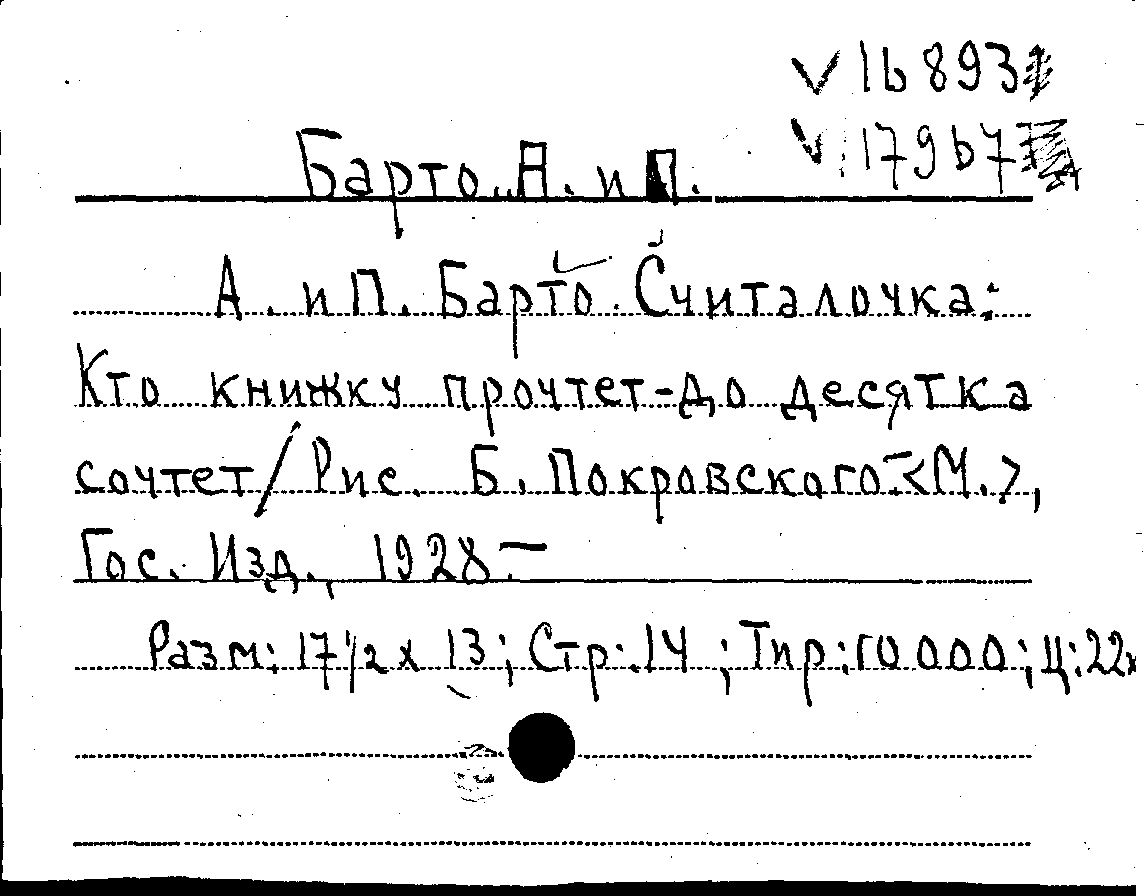 V 16893
V 17967
Барто А. и П.
А. и П. Барто. Считалочка:
Кто книжку прочтет-до десятка
сочтет/Рис. Б. Покровского.-<М.>,
Гос. Изд., 1928.-
Разм: 17 1/2 x 13; Стр: 14; Тир: 10 000; Ц: 22к